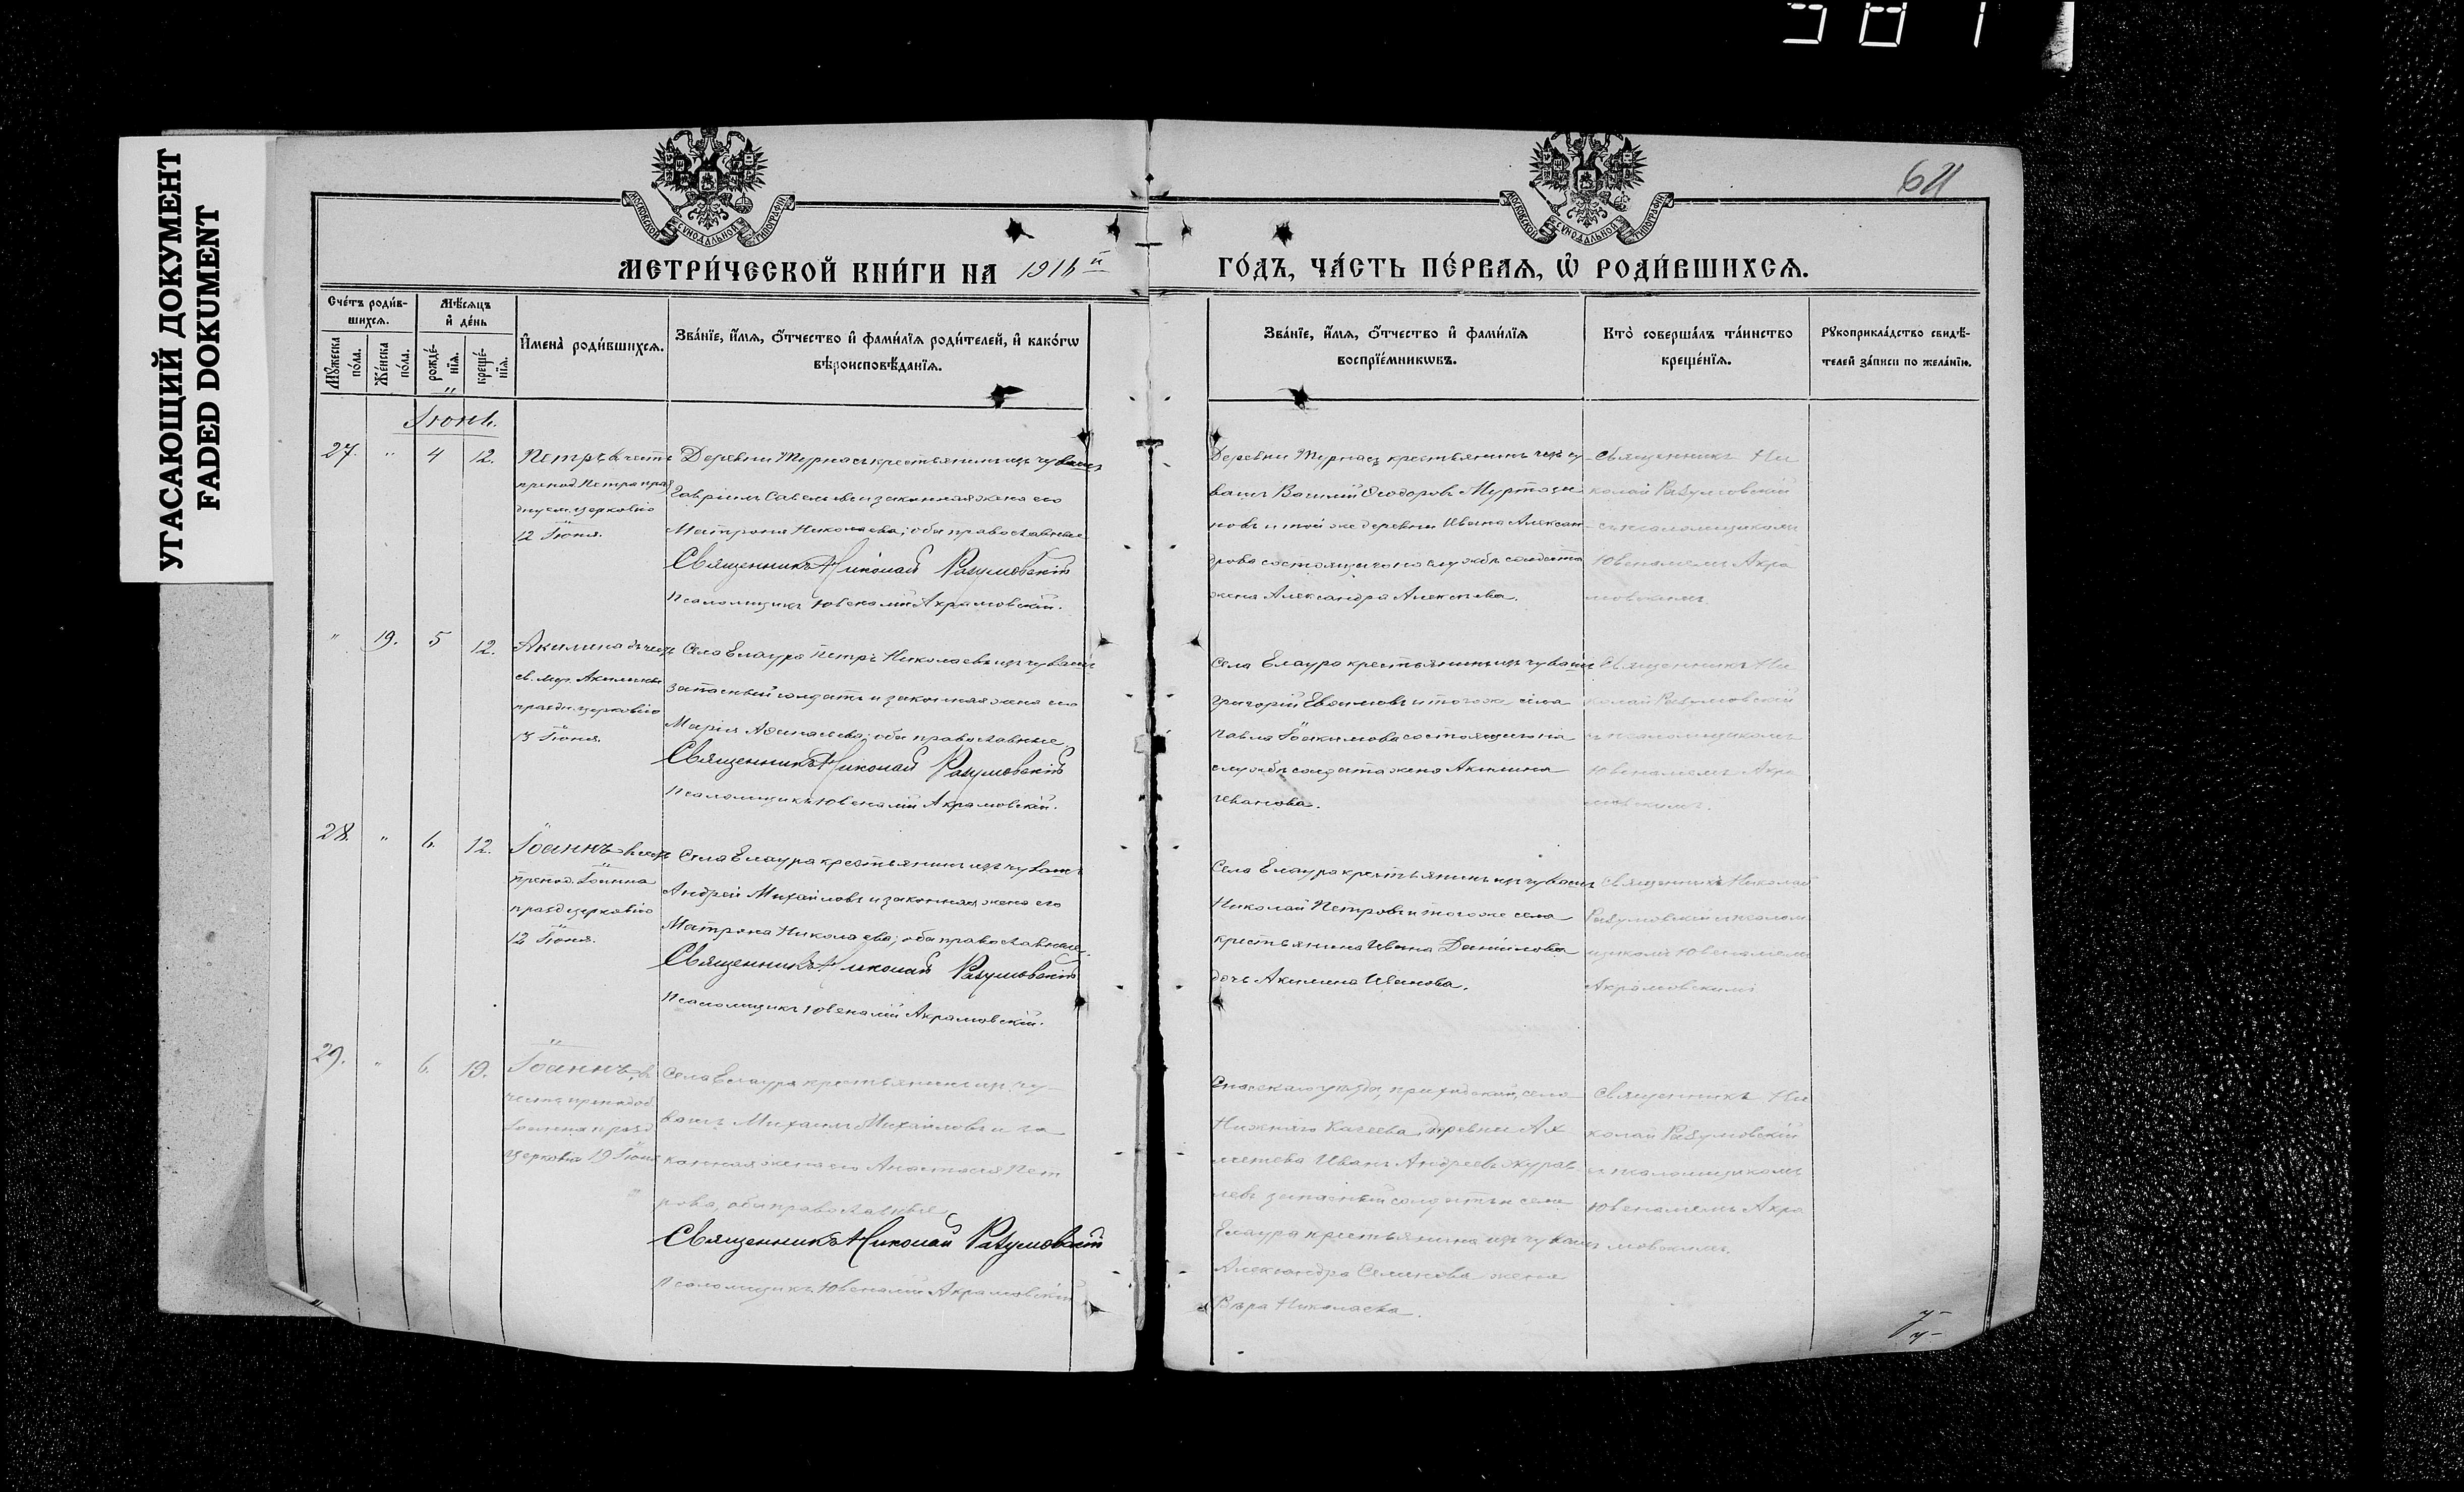 581
64
УГАСАЮЩИЙ ДОКУМЕНТ
FADED DOKUMENT
МОСКОВСКОЙ СУНОДАЛЬНОЙ ТИПОГРАФІИ
МОСКОВСКОЙ СУНОДАЛЬНОЙ ТИПОГРАФІИ
МЕТРИ́ЧЕСКОЙ КНИ́ГИ НА 1916 й
ГО́ДЪ, ЧА́СТЬ ПЕ́РВАЯ, Ѡ҆ РОДИ́ВШИХСЯ.
Сче́тъ роди́в-
шихся.
Мѣ́сяцъ
и҆ де́нь
Мꙋ́жеска
по́ла.
Же́нска
по́ла.
рожде́-
нїя.
креще́-
нїя.
И҆мена̀ роди́вшихся.
Зва́нїе, и҆́мя, ѻ҆́тчество и҆ фами́лїя роди́телей, и҆ како́гѡ
вѣроисповѣ́данїя.
Зва́нїе, и҆́мя, ѻ҆́тчество и҆ фами́лїя
воспрїе́мникѡвъ.
Кто̀ соверша́лъ та́инство
креще́нїя.
Рꙋкоприкла́дство свидѣ́-
телей за́писи по жела́нїю.
Іюнь.
27. " 4 12.
Петръ въ честь
препод. Петра праз
днуем. церковію
12 Іюня.
Деревни Турнасъ крестьянинъ изъ чувашъ
Гавріилъ Савельевъ и законная жена его
Матрона Николаева; оба православные
Священникъ Николай Разумовскій
Псаломщикъ Ювеналій Акрамовскій.
Деревни Турнасъ крестьянинъ изъ чу-
вашъ Василій Ѳеодоровъ
новъ и той же деревни Ивана Алексан-
дрова состоящаго на службѣ солдата
жена Александра Алексѣева.
Священникъ Ни
колай Разумовскій
съ псаломщикомъ
Ювеналіемъ Акра
мовскимъ.
" 19. 5 12.
Акилина въ честь
св. муч. Акилины
праздн. церковію
13 Іюня.
Села Елаура Петръ Николаевъ изъ чувашъ
запасный солдатъ и законная жена его
Марія Аѳанасьева; оба православные
Священникъ Николай Разумовскій
Псаломщикъ Ювеналій Акрамовскій.
Села Елаура крестьянинъ изъ чувашъ
Григорій Евѳимовъ и того же села
Павла Іоакимова состоящаго на
службѣ солдата жена Акилина
Иванова.
Священникъ Ни
колай Разумовскій
съ псаломщикомъ
Ювеналіемъ Акра
мовскимъ.
28. " 6. 12.
Іоаннъ въ честь
препод. Іоанна
празд церковію
12 Іюня.
Села Елаура крестьянинъ изъ чувашъ
Андрей Михайловъ и законная жена его
Матрона Николаева; оба православные.
Священникъ Николай Разумовскій
Псаломщикъ Ювеналій Акрамовскій.
Села Елаура крестьянинъ изъ чувашъ
Николай Петровъ и того же села
крестьянина Ивана Данилова
дочь Акилина Иванова.
Священникъ Николай
Разумовскій съ псалом
щикомъ Ювеналіемъ
Акрамовскимъ
29. " 6. 19.
Іоаннъ, въ
честь преподоб.
Іоанна празд
церковію 19 Іюня
Села Елаура крестьянинъ изъ чу-
вашъ Михаилъ Михайловъ и за
конная жена его Анастасія Пет
рова, оба православные
Священникъ Николай Разумовскій
Псаломщикъ Ювеналій Акрамовскій
Спасскаго уѣзда, села
Нижняго Качеева, деревни Ах
метева Иванъ Андреевъ Журав
левъ запасный солдатъ и села
Елаура крестьянина изъ чувашъ
Александра Семенова жена
Вѣра Николаева.
Священникъ Ни
колай Разумовскій
съ псаломщикомъ
Ювеналіемъ Акра
мовскимъ.